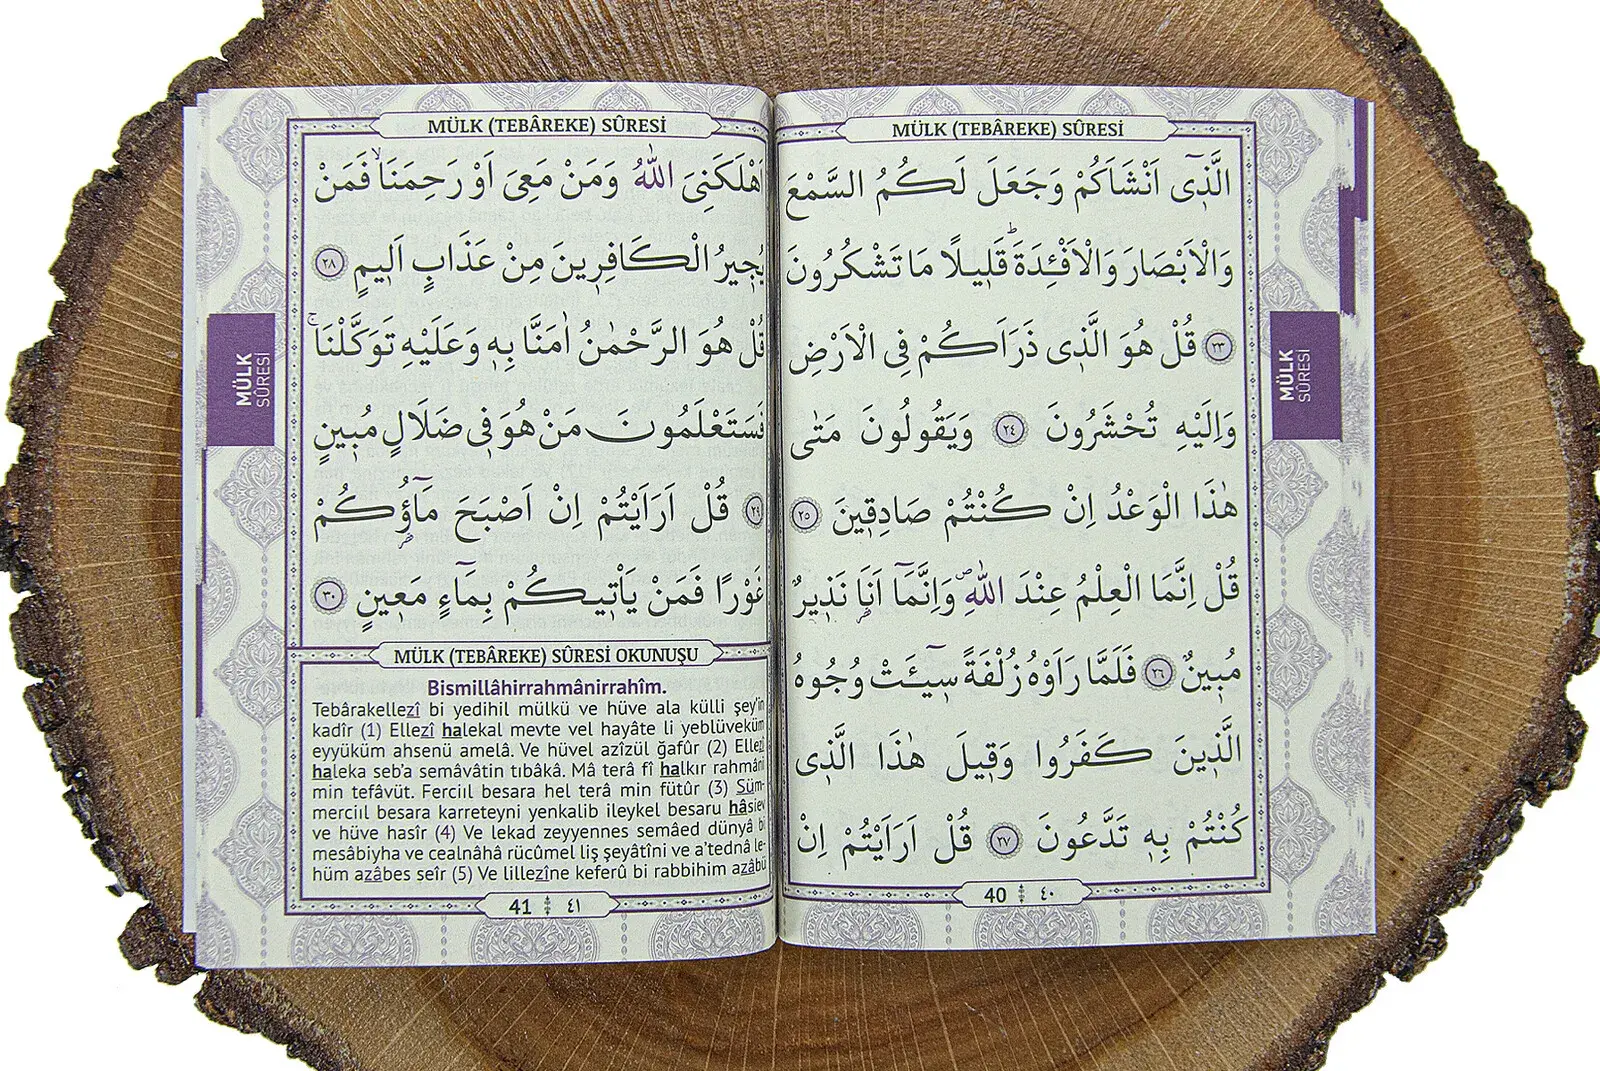 MÜLK (TEBÂREKE) SÛRESİ
الَّذ۪ٓي اَنْشَاَكُمْ وَجَعَلَ لَكُمُ السَّمْعَ
وَالْاَبْصَارَ وَالْاَفْـِٔدَةَۜ قَل۪يلًا مَا تَشْكُرُونَ
﴿٢٣﴾ قُلْ هُوَ الَّذ۪ي ذَرَاَكُمْ فِي الْاَرْضِ
وَاِلَيْهِ تُحْشَرُونَ ﴿٢٤﴾ وَيَقُولُونَ مَتٰى
هٰذَا الْوَعْدُ اِنْ كُنْتُمْ صَادِق۪ينَ ﴿٢٥﴾
قُلْ اِنَّمَا الْعِلْمُ عِنْدَ اللّٰهِۖ وَاِنَّمَٓا اَنَا۬ نَذ۪يرٌ
مُب۪ينٌ ﴿٢٦﴾ فَلَمَّا رَاَوْهُ زُلْفَةً س۪ٓيـَٔتْ وُجُوهُ
الَّذ۪ينَ كَفَرُوا وَق۪يلَ هٰذَا الَّذ۪ي
كُنْتُمْ بِه۪ تَدَّعُونَ ﴿٢٧﴾ قُلْ اَرَاَيْتُمْ اِنْ
40 ٤٠
MÜLK SÛRESİ
MÜLK (TEBÂREKE) SÛRESİ
اَهْلَكَنِيَ اللّٰهُ وَمَنْ مَعِيَ اَوْ رَحِمَنَاۙ فَمَنْ
يُج۪يرُ الْكَافِر۪ينَ مِنْ عَذَابٍ اَل۪يمٍ ﴿٢٨﴾
قُلْ هُوَ الرَّحْمٰنُ اٰمَنَّا بِه۪ وَعَلَيْهِ تَوَكَّلْنَاۚ
فَسَتَعْلَمُونَ مَنْ هُوَ ف۪ي ضَلَالٍ مُب۪ينٍ
﴿٢٩﴾ قُلْ اَرَاَيْتُمْ اِنْ اَصْبَحَ مَٓاؤُ۬كُمْ
غَوْرًا فَمَنْ يَأْت۪يكُمْ بِمَٓاءٍ مَع۪ينٍ ﴿٣٠﴾
MÜLK (TEBÂREKE) SÛRESİ OKUNUŞU
Bismillâhirrahmânirrahîm.
Tebârakellezî bi yedihil mülkü ve hüve ala külli şey'in
kadîr (1) Ellezî halekal mevte vel hayâte li yeblüveküm
eyyüküm ahsenü amelâ. Ve hüvel azîzül ğafûr (2) Ellezî
haleka seb'a semâvâtin tıbâkâ. Mâ terâ fî halkır rahmâni
min tefâvüt. Ferciıl besara hel terâ min fütûr (3) Süm-
merciıl besara karreteyni yenkalib ileykel besaru hâsiev
ve hüve hasîr (4) Ve lekad zeyyennes semâed dünyâ bi
mesâbiyha ve cealnâhâ rücûmel liş şeyâtîni ve a'tednâ le-
hüm azâbes seîr (5) Ve lillezîne keferû bi rabbihim azâbü
41 ٤١
MÜLK SÛRESİ